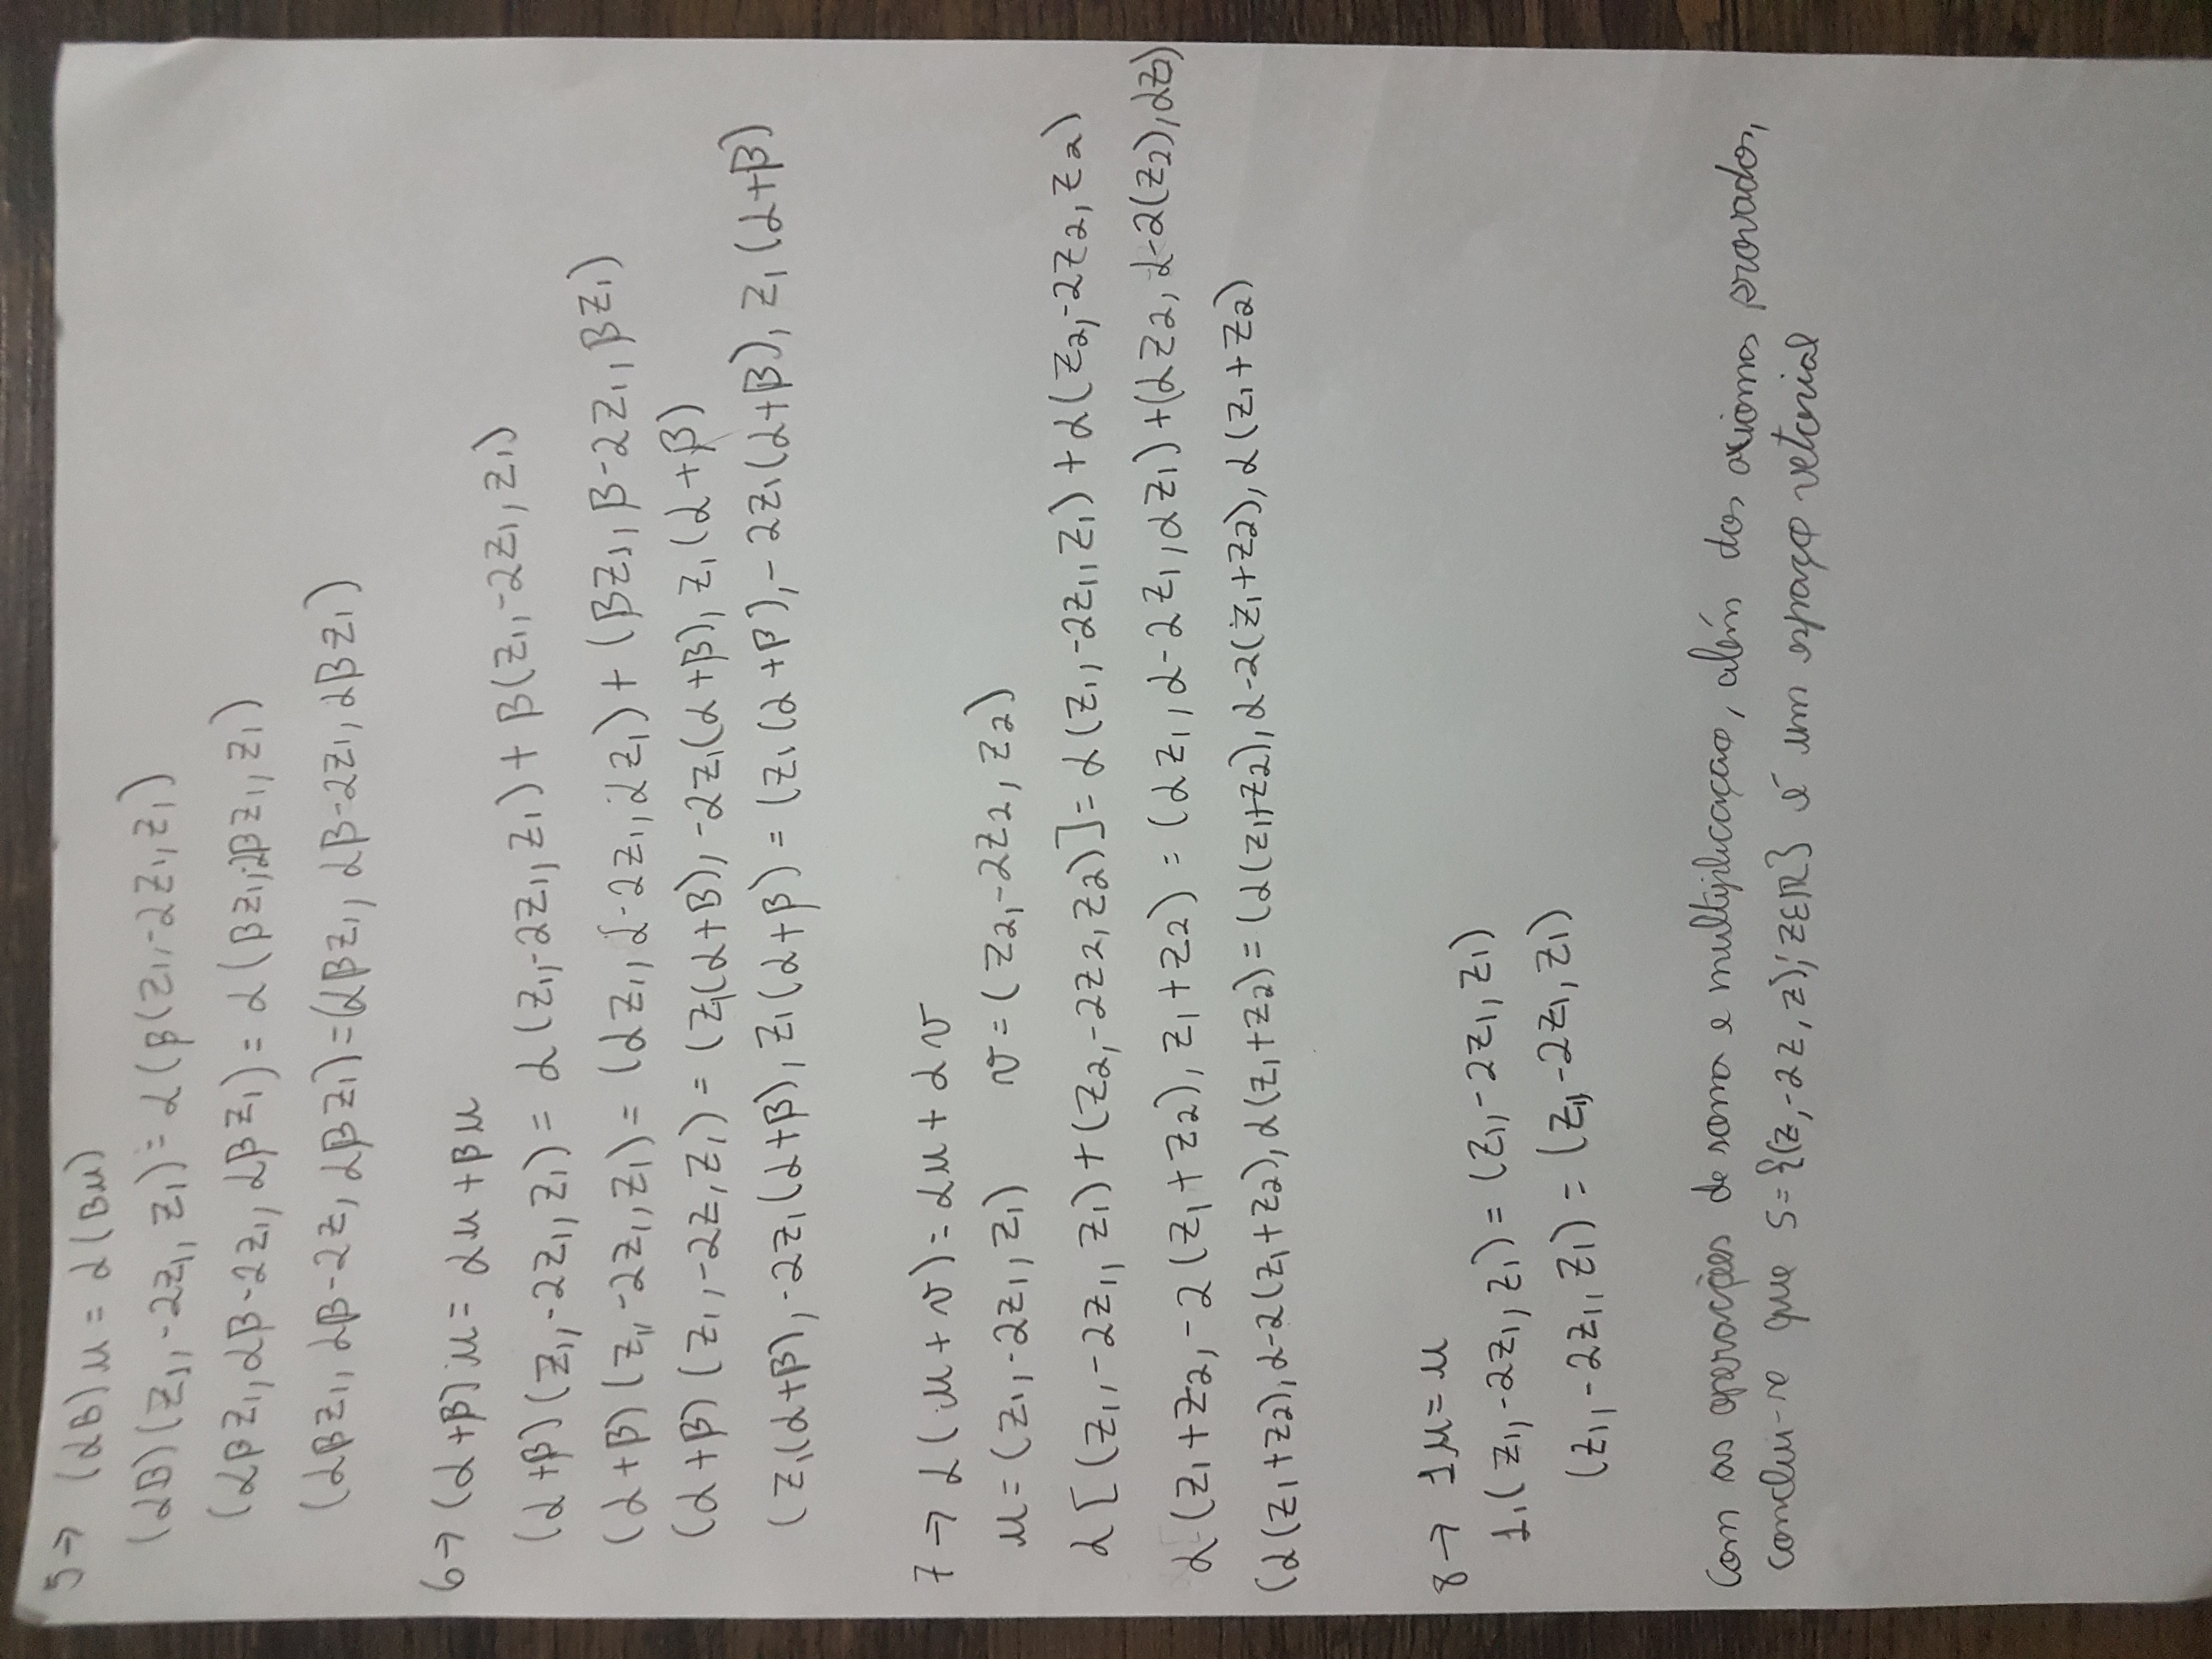 5→ (αβ)u = α(βu)
(αβ)(z₁,-2z₁, z₁) = α(β(z₁,-2z₁,z₁)
(αβz₁, αβ-2z₁, αβz₁) = α(βz₁,-2βz₁, z₁)
(αβz₁, αβ-2z, αβz₁)=(αβz₁, αβ-2z₁, αβz₁)
6→ (α+β)u = αu+βu
(α+β)(z₁,-2z₁, z₁) = α(z₁,-2z₁, z₁) + β(z₁,-2z₁, z₁)
(α+β)(z₁,-2z₁,z₁) = (αz₁, α-2z₁, αz₁) + (βz₁, β-2z₁, βz₁)
(α+β) (z₁,-2z, z₁) = (z₁(α+β), -2z₁(α+β), z₁(α+β)
(z₁(α+β), -2z₁(α+β), z₁(α+β) = (z₁(α+β),-2z₁(α+β), z₁(α+β)
7→ α(u+v)=αu+αv
u=(z₁,-2z₁,z₁) v=(z₂,-2z₂, z₂)
α[(z₁,-2z₁, z₁)+(z₂,-2z₂,z₂)]=α(z₁,-2z₁,z₁)+α(z₂,-2z₂,z₂)
α(z₁+z₂,-2(z₁+z₂), z₁+z₂) = (αz₁, α-2z₁, αz₁)+(αz₂, α-2(z₂), αz₂)
(α(z₁+z₂), α-2(z₁+z₂), α(z₁+z₂)=(α(z₁+z₂), α-2(z₁+z₂), α(z₁+z₂)
8→ 1u=u
1.(z₁,-2z₁, z₁) = (z₁,-2z₁, z₁)
(z₁,-2z₁, z₁) = (z₁,-2z₁, z₁)
Com as operações de soma e multiplicaçao, além dos axiomas provados,
conclui-se que S={(z,-2z, z); z∈ℝ} é um espaço vetorial